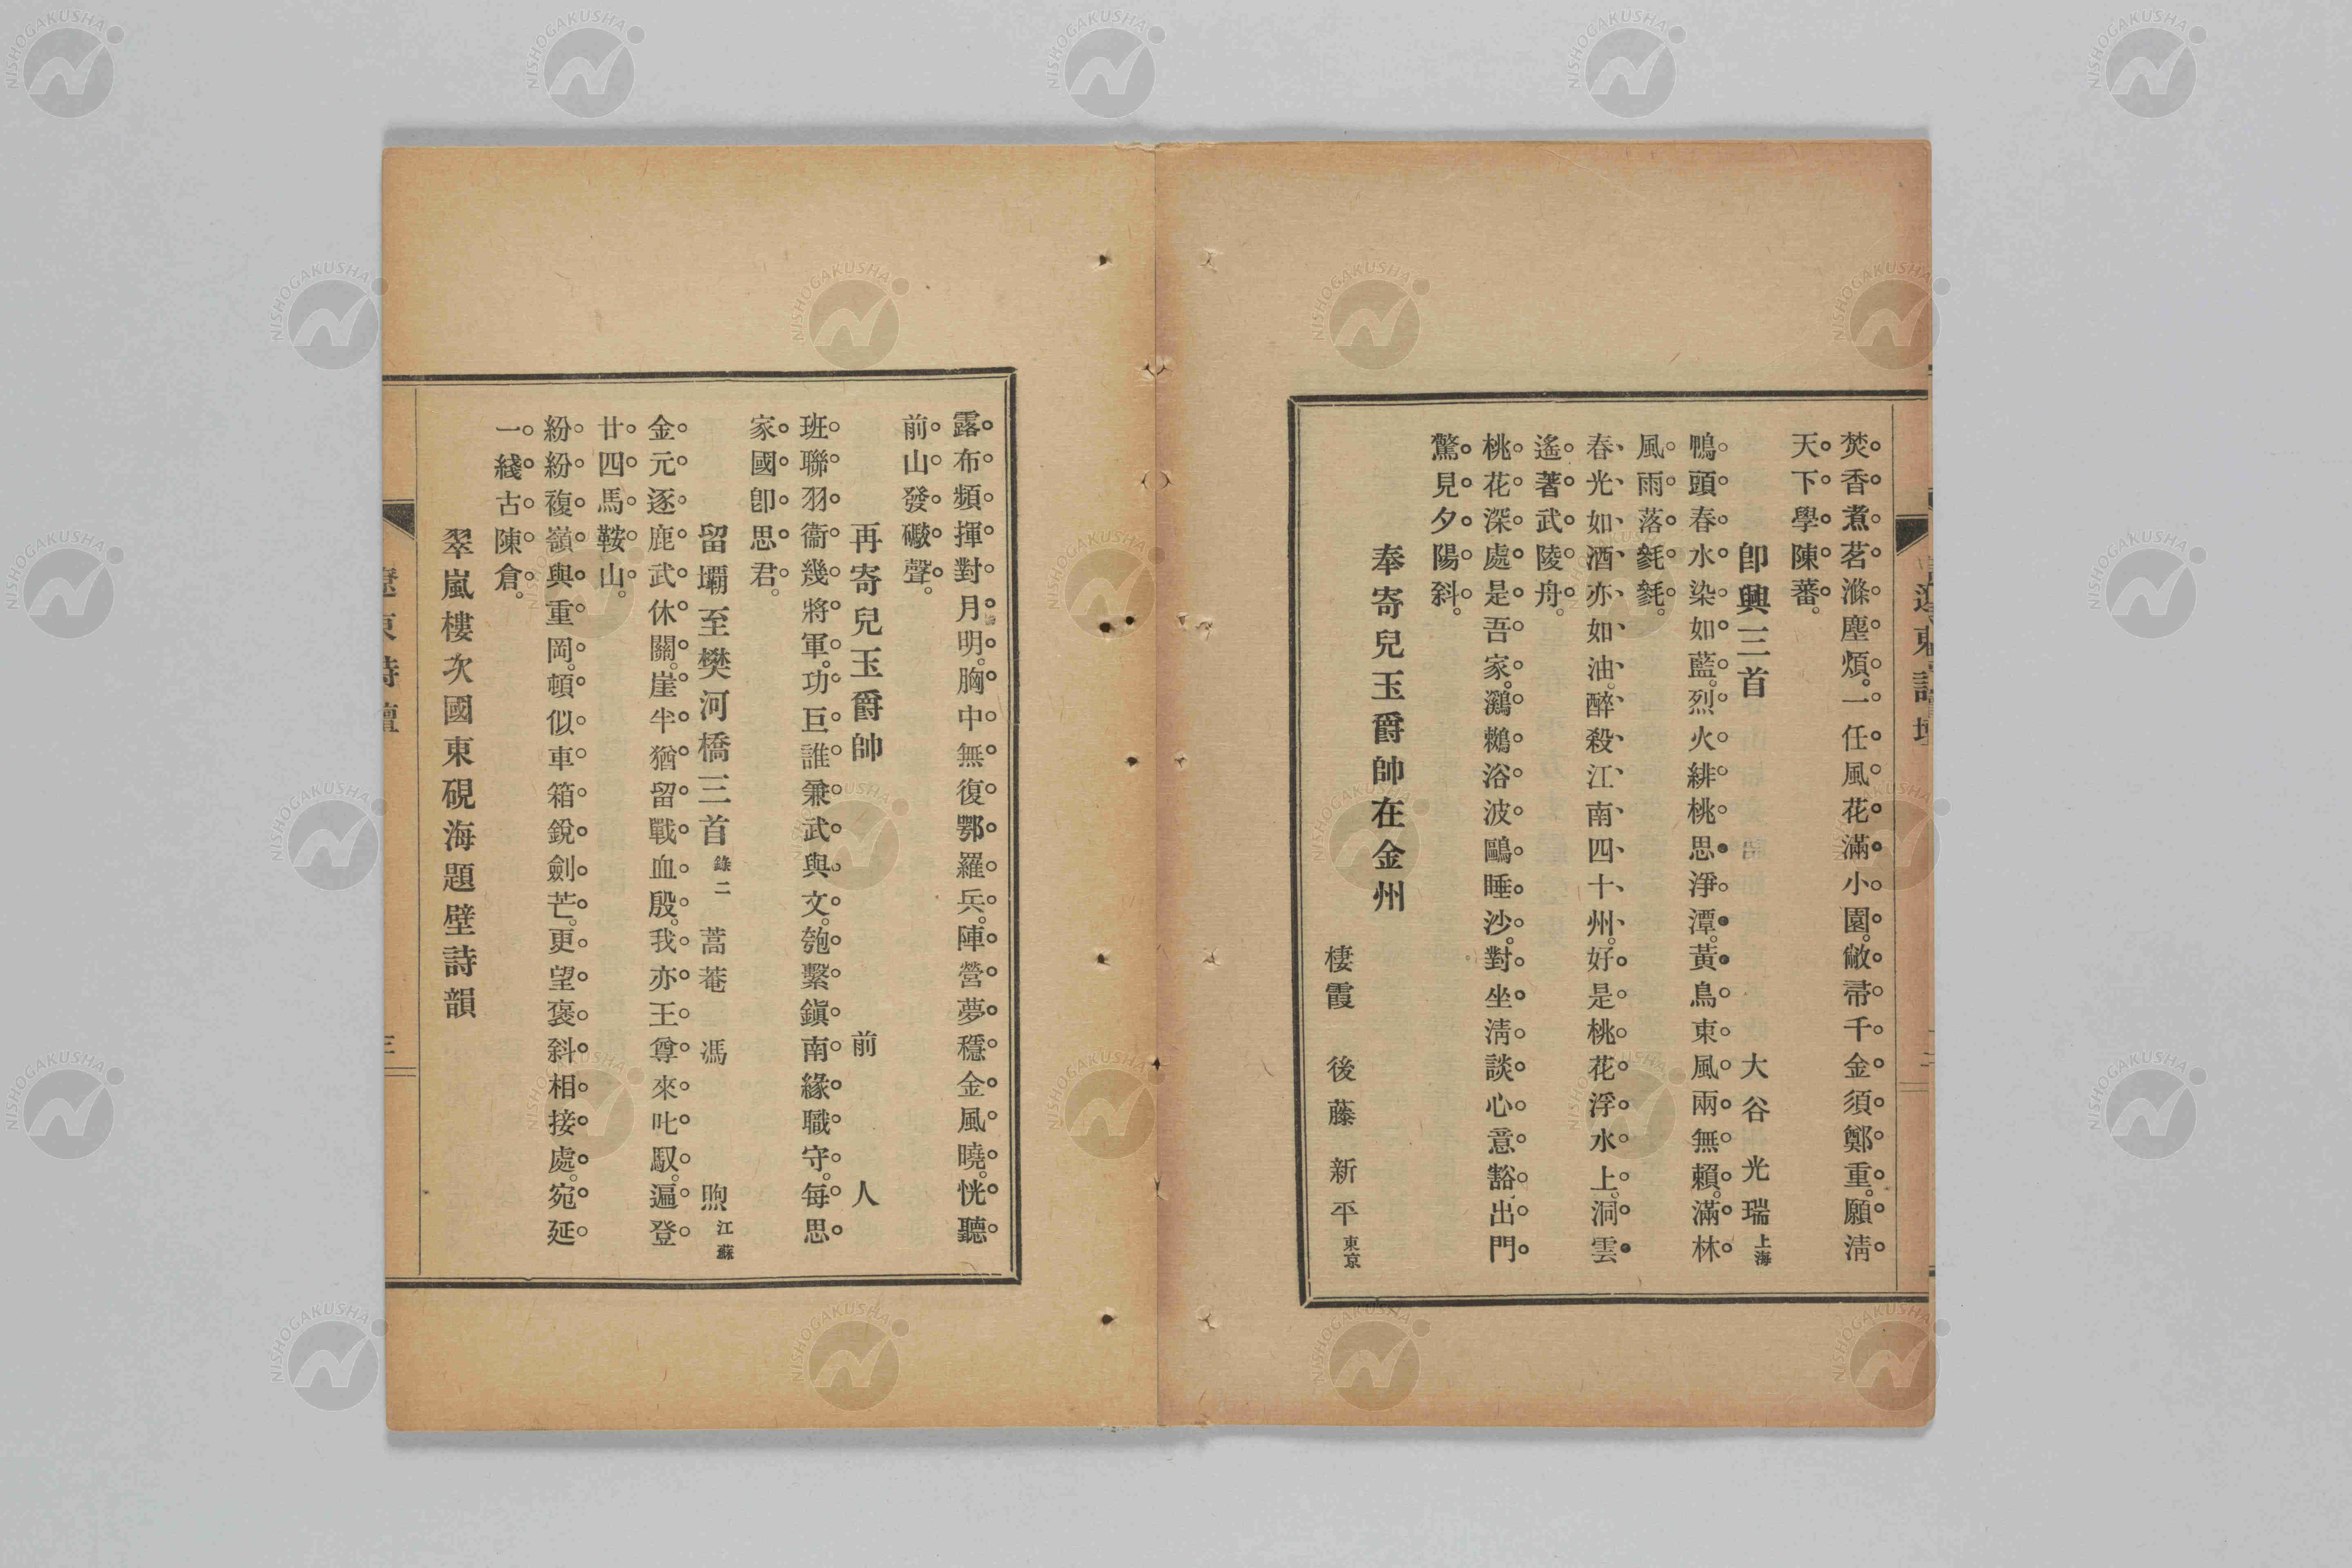 焚香煮茗滌塵煩。一任風花滿小園。敝帚千金須鄭重。願淸
天下學陳蕃。
卽興三首 大谷光瑞 上海
鴨頭春水染如藍。烈火緋桃思淨潭。黃鳥東風兩無賴。滿林
風雨落毿毿。
春光如酒亦如油。醉殺江南四十州。好是桃花浮水上。洞雲
遙著武陵舟。
桃花深處是吾家。鸂鶒浴波鷗睡沙。對坐淸談心意豁。出門
驚見夕陽斜。
奉寄兒玉爵帥在金州
棲霞 後藤新平 東京
遼東詩壇
露布頻揮對月明。胸中無復鄂羅兵。陣營夢穩金風曉。恍聽
前山發礮聲。
再寄兒玉爵帥 前人
班聯羽衞幾將軍。功巨誰兼武與文。匏繫鎭南緣職守。每思
家國卽思君。
留壩至樊河橋三首 錄二 蒿菴 馮煦 江蘇
金元逐鹿武休關。崖半猶留戰血殷。我亦王尊來叱馭。遍登
廿四馬鞍山。
紛紛複嶺與重岡。頓似車箱銳劍芒。更望褒斜相接處。宛延
一綫古陳倉。
翠嵐樓次國東硯海題壁詩韻
遼東詩壇
三
NISHOGAKUSHA